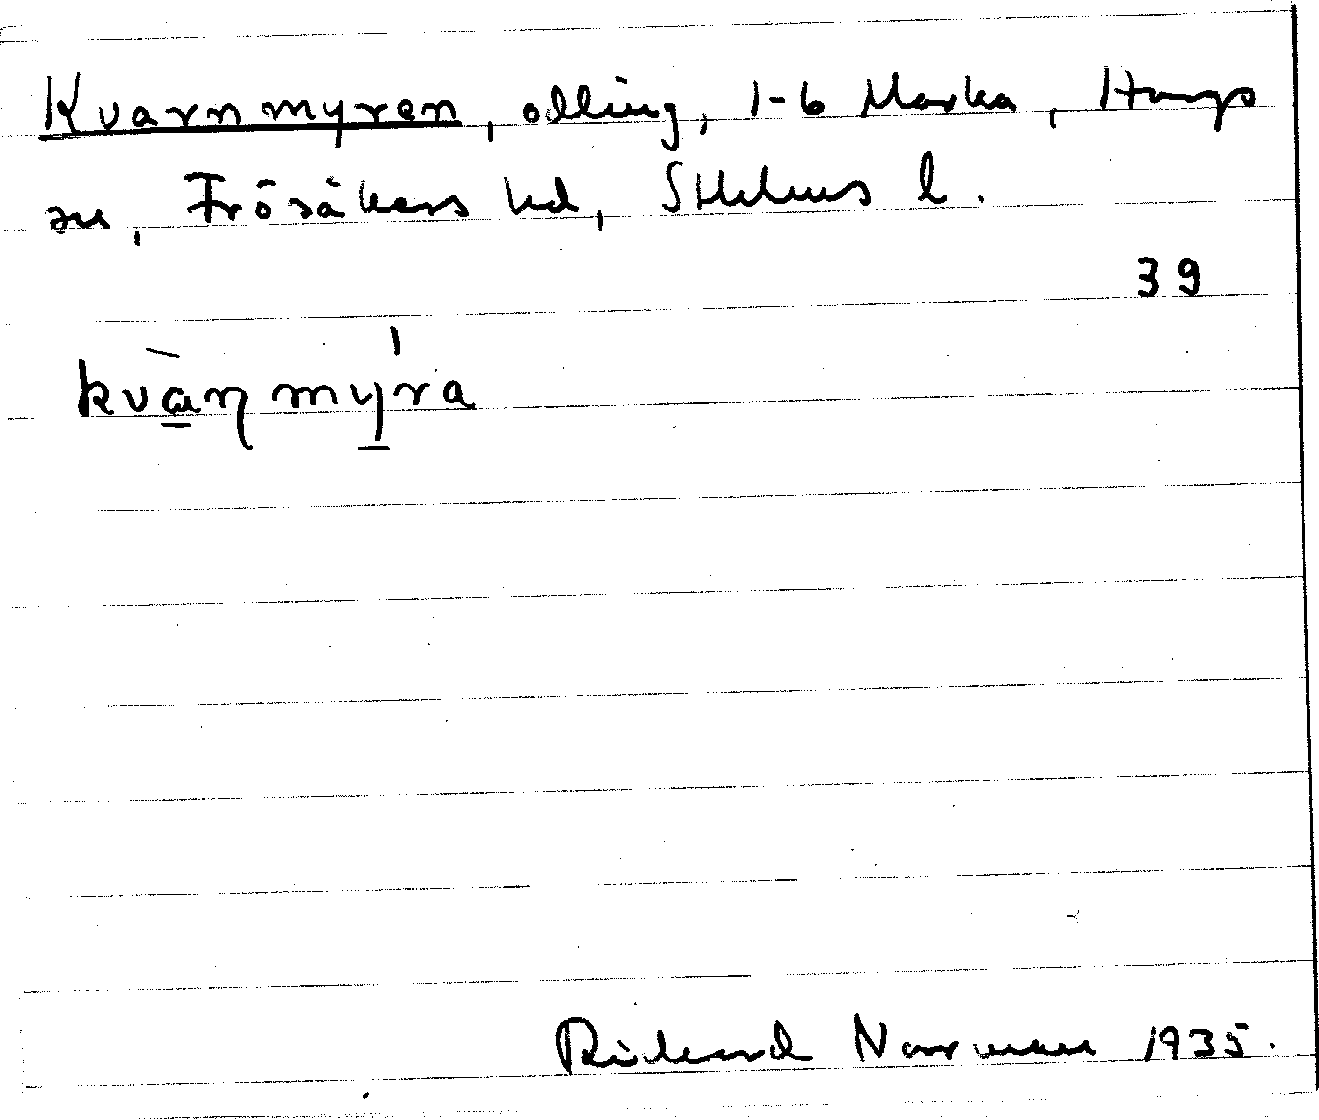 Kvarnmyren, odling, 1-6 Marka, Hargs
sn, Frösåkers hd, Sthlms l.
39
kvàṇmýra
Rickard Norrman 1935.